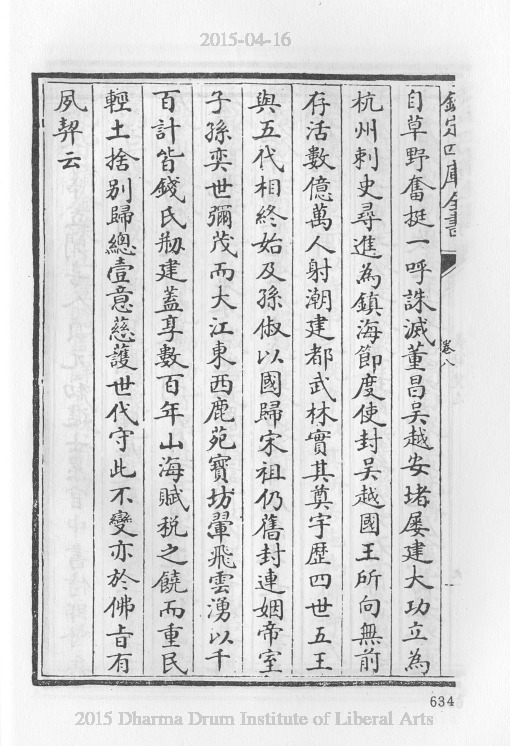 2015-04-16
欽定四庫全書
卷八
自草野奮挺一呼誅滅董昌吳越安堵屢建大功立為
杭州刺史尋進為鎮海節度使封吳越國王所向無前
存活數億萬人射潮建都武林實其奠宇歴四世五王
與五代相終始及孫俶以國歸宋祖仍舊封連姻帝室
子孫奕世彌茂而大江東西鹿苑寳坊翬飛雲湧以千
百計皆錢氏剏建蓋享數百年山海賦税之饒而重民
輕土捨别歸總壹意慈護世代守此不變亦於佛㫖有
夙契云
634
2015 Dharma Drum Institute of Liberal Arts